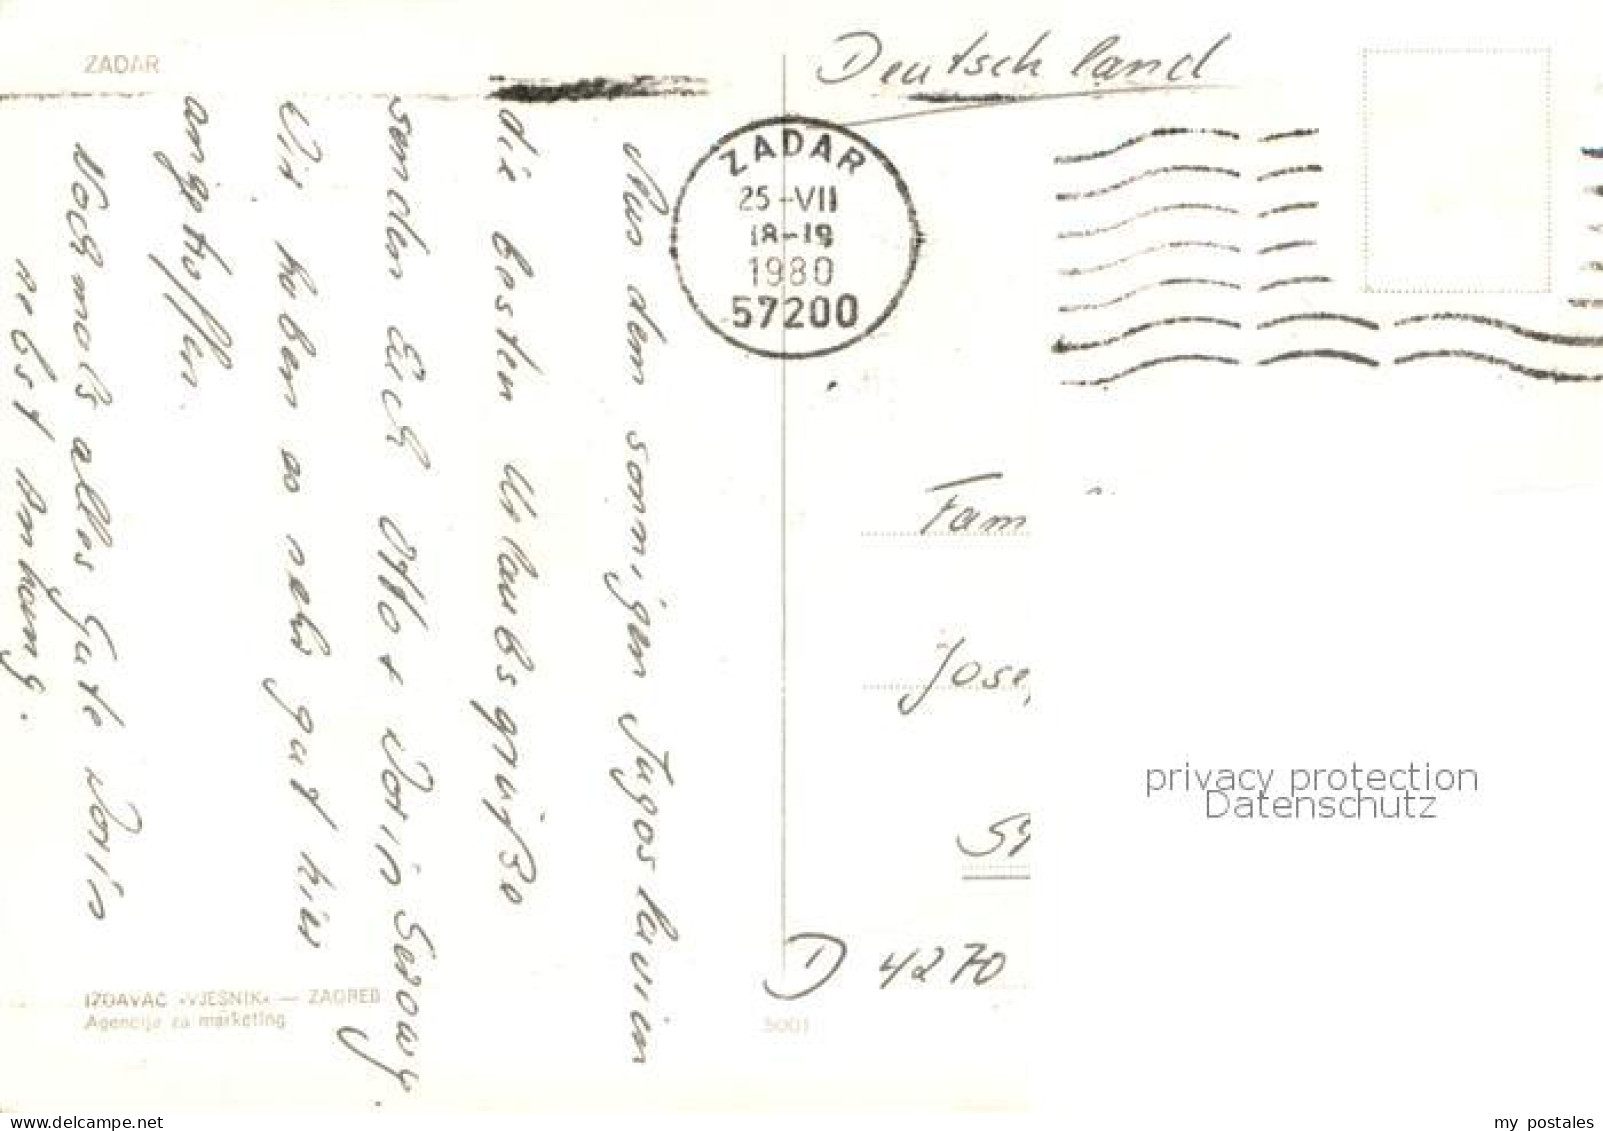 ZADAR
Aus dem sonnigen Jugoslavien
die besten Urlaubsgrüße
senden Euch Otto + Dorin
Wir haben es sehr gut hier
angetroffen.
Nochmals alles Gute Dorin
nebst Anhang.
IZDAVAČ »VJESNIK« — ZAGREB
Agencija za marketing
5001
Deutschland
ZADAR
25-VII
18-19
1980
57200
Fam
Jose
D 4270
privacy protection
Datenschutz
www.delcampe.net
my_postales